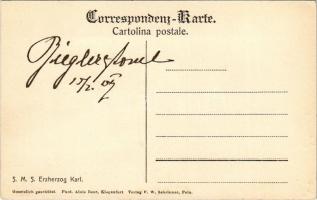 Correspondenz-Karte.
Cartolina postale.
15/2. 09
S. M. S. Erzherzog Karl.
Gesetzlich geschützt. Phot. Alois Beer, Klagenfurt Verlag F. W. Schrinner, Pola.